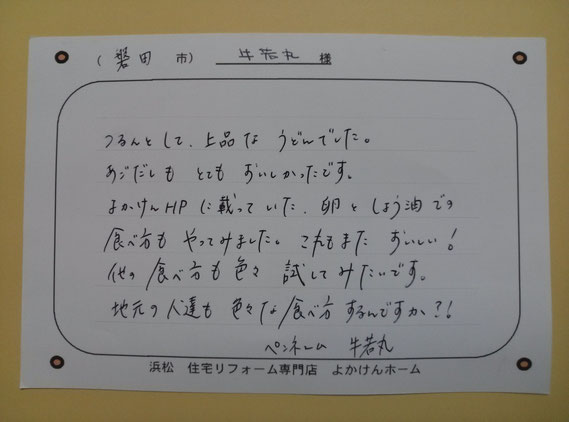 (磐田 市) 牛若丸 様
つるんとして、上品な うどんでした。
あごだしも とても おいしかったです。
よかけんHPに載っていた、卵としょう油での
食べ方も やってみました。これもまた おいしい!
他の食べ方も色々 試してみたいです。
地元の人達も 色々な食べ方 するんですか?!
ペンネーム 牛若丸
浜松 住宅リフォーム専門店 よかけんホーム